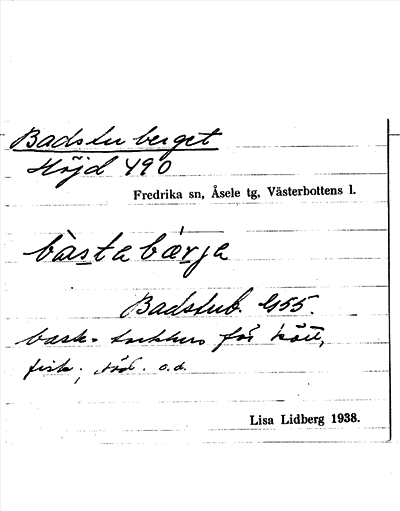 Badstuberget
Höjd 490
Fredrika sn, Åsele tg, Västerbottens l.
bàstabærje
Badstub. G55.
bast = torkhus för kött,
fisk, säd. o.d.
Lisa Lidberg 1938.